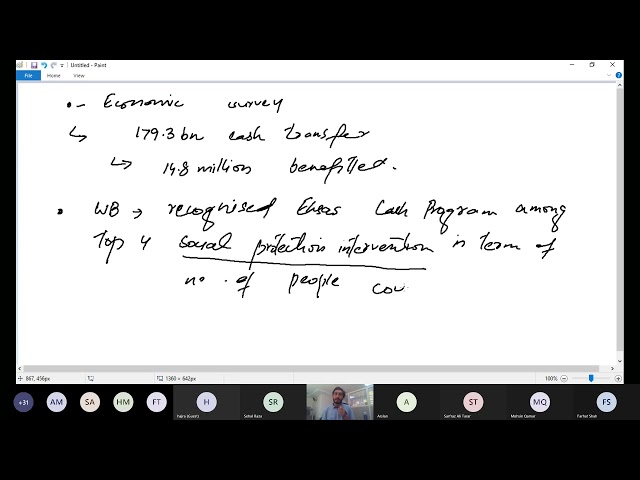 Untitled - Paint
File Home View
•- Economic survey
↳ 179.3 bn cash transfer
↳ 14.8 million benefitted.
• WB → recognised Ehsas Cash Program among
Top 4 social protection intervention in term of
no. of people cov
867, 456px 1360 × 642px 100%
+31 AM SA HM FT H SR A ST MQ FS
Hajra (Guest) Sahal Raza Arslan Sarfraz Ali Tarar Mohsin Qamar Farhat Shah